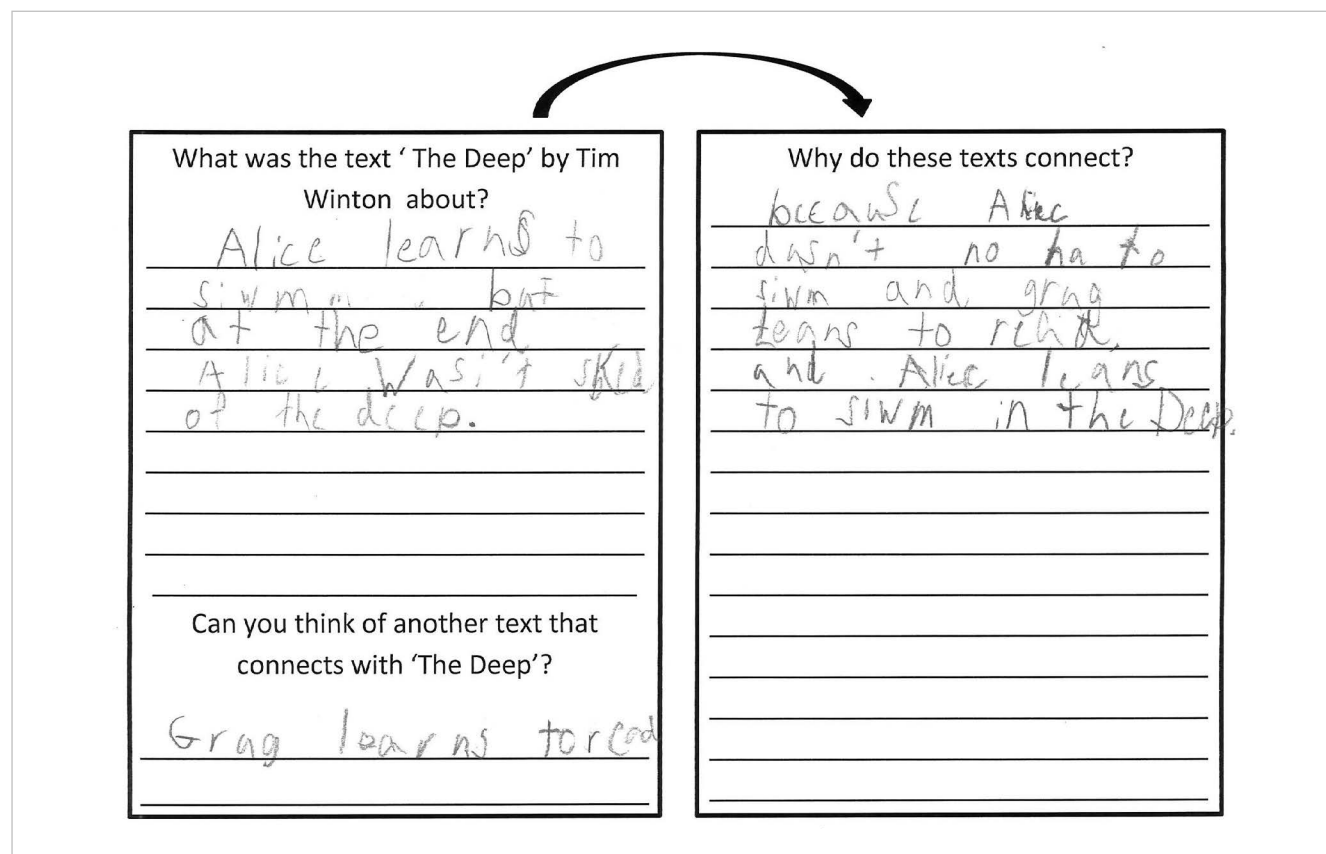 What was the text ‘ The Deep’ by Tim
Winton about?
Alice learns to
siwm but
at the end
Alice Wasi't sked
of the deep.
Can you think of another text that
connects with ‘The Deep’?
Grug learns toread
Why do these texts connect?
beeause Aliec
dusn't no ha to
siwm and grug
leans to
and . Aliec leans
to siwm in the Deep.